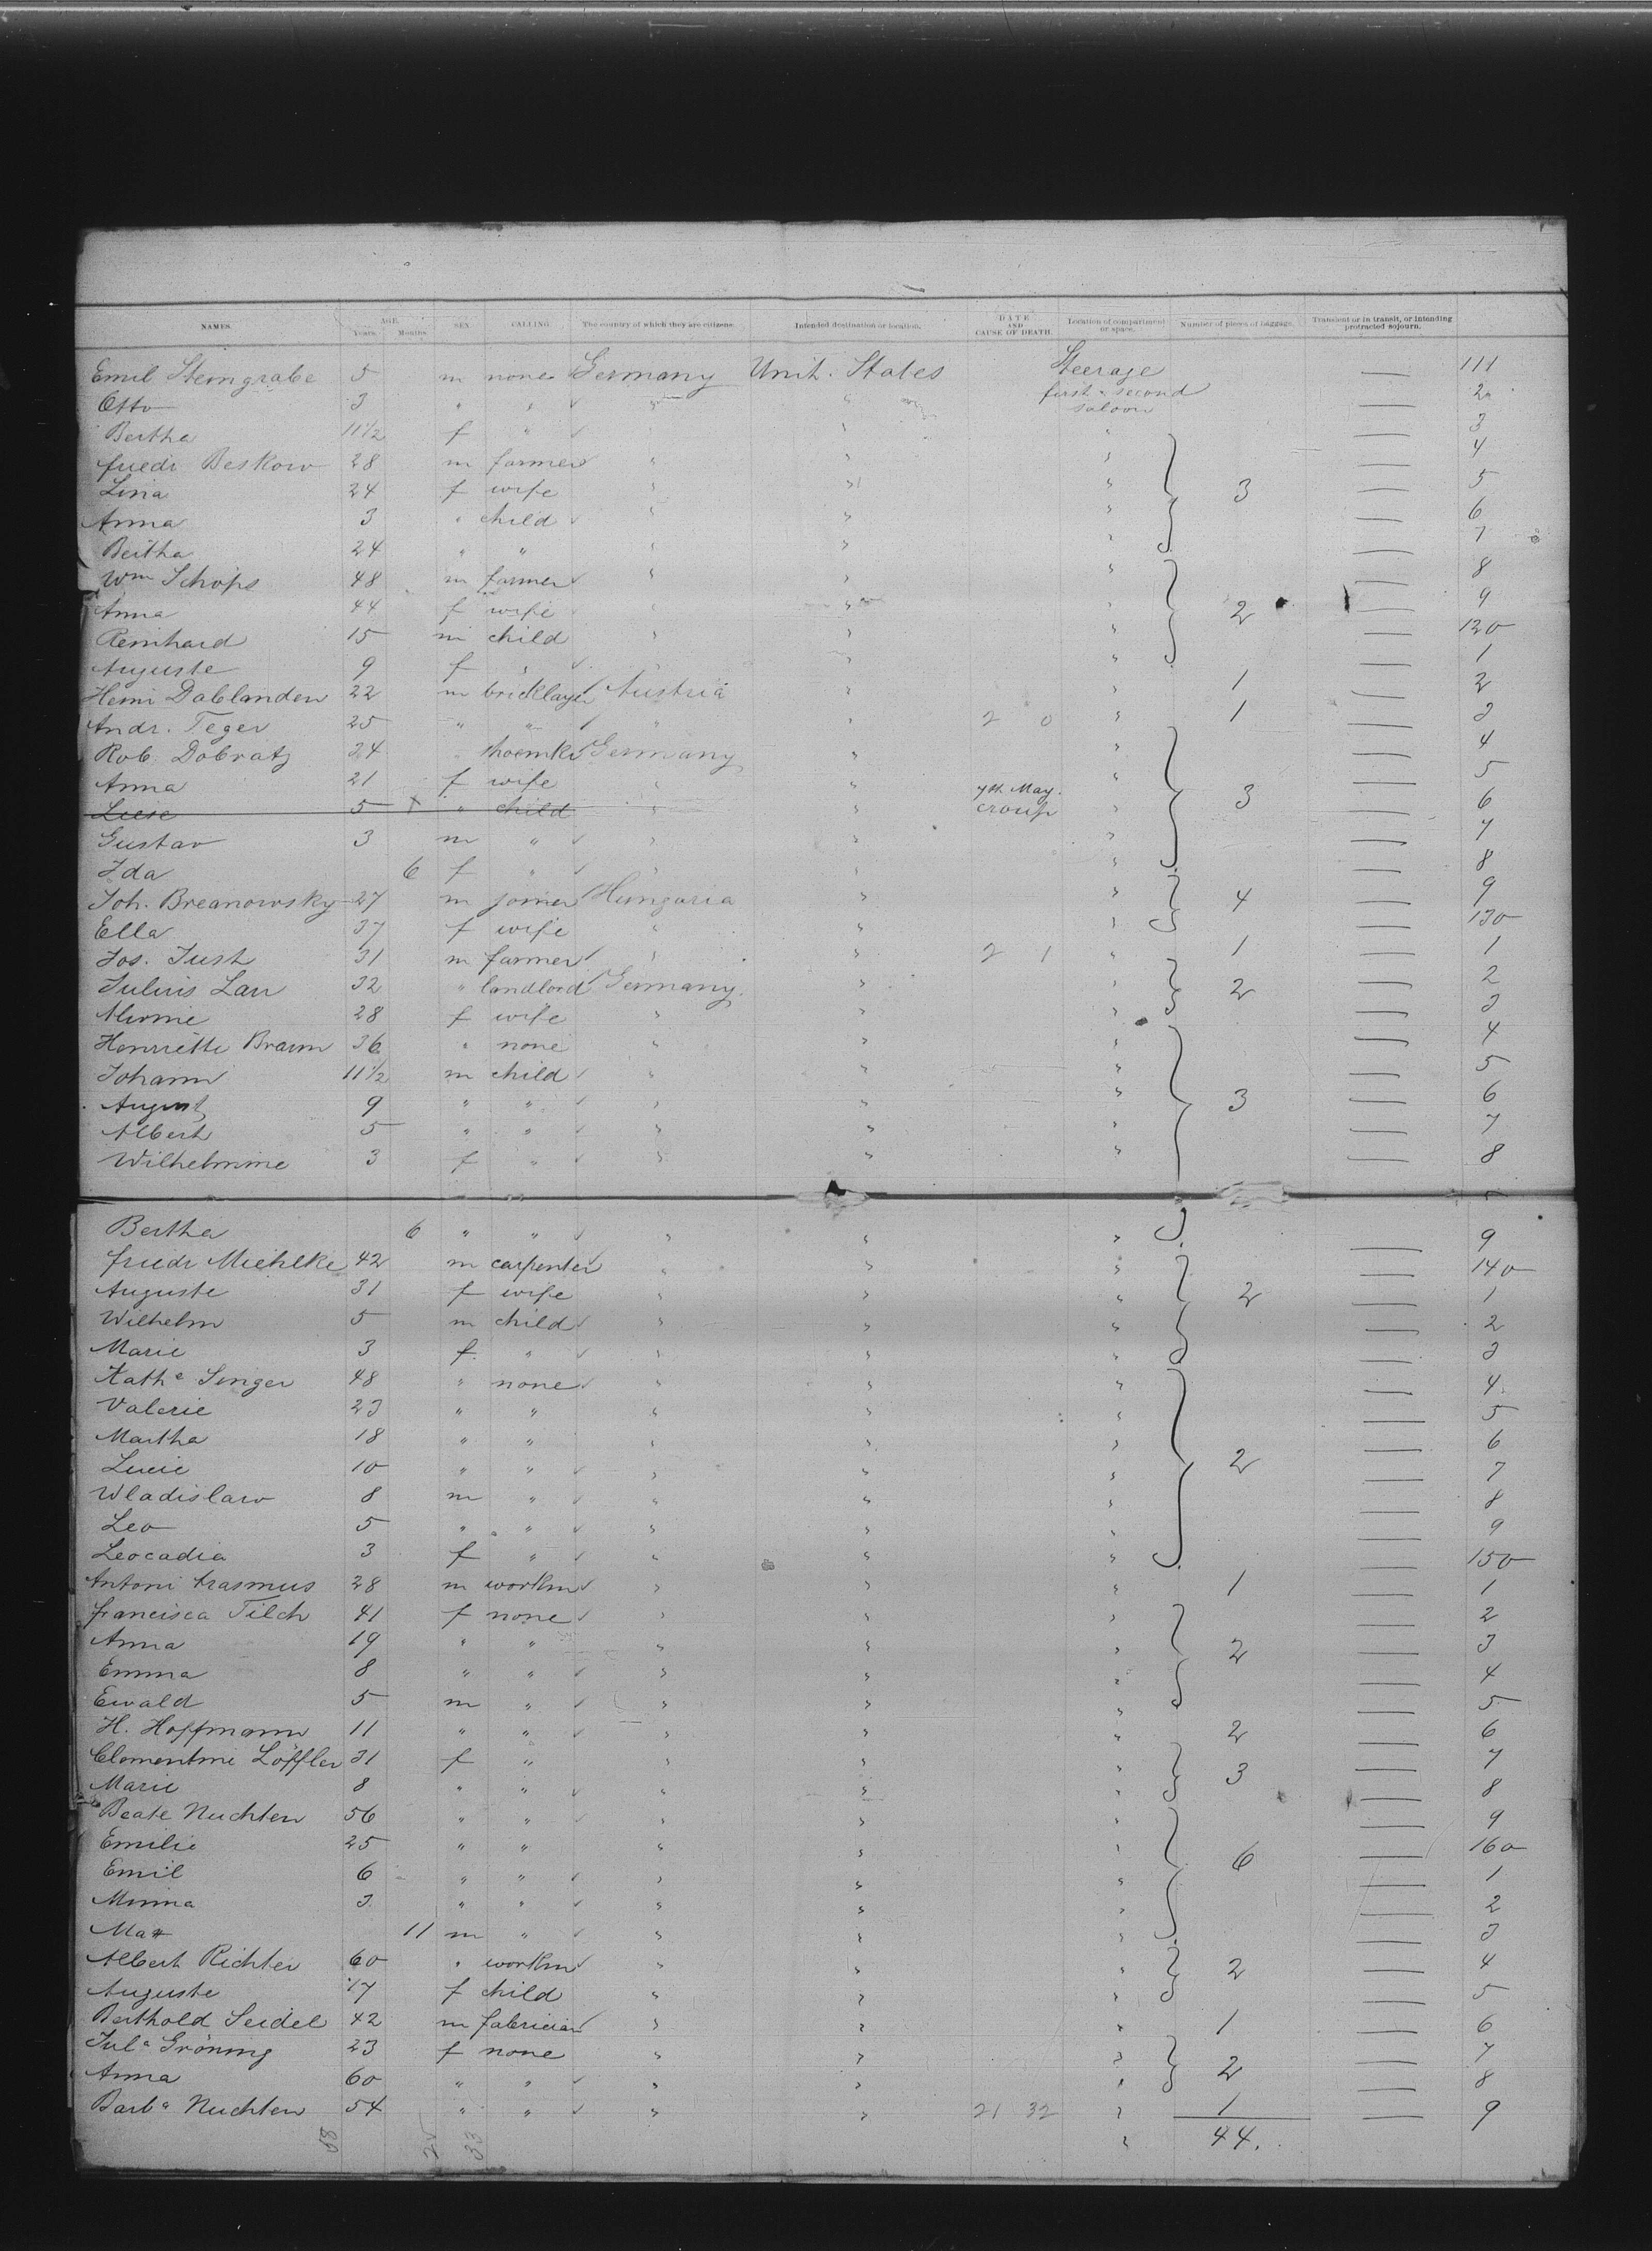 NAMES. AGE. Years. Months. SEX. CALLING. The country of which they are citizens. Intended destination or location. DATE AND CAUSE OF DEATH. Location of compartment or space. Number of pieces of baggage. Transient or in transit, or intending protracted sojourn.
Emil Steingrabe 5 m none Germany Unit. States Steerage — 111
Otto 3 " " " " first & second saloon — 2
Bertha 11 1/2 f " " " " — 3
friedr Beskow 28 m farmer " " " — 4
Lina 24 f wife " " " 3 — 5
Anna 3 " child " " " — 6
Bertha 24 " " " " " — 7
Wm Schöps 48 m farmer " " " — 8
Anna 44 f wife " " " 2 — 9
Reinhard 15 m child " " " — 120
Auguste 9 f " " " " — 1
Heinri Dablanden 22 m bricklayer Austria " " 1 — 2
Andr. Teger 25 " " " " 2 0 " 1 — 3
Rob. Dobratz 24 " shoemkr Germany " " — 4
Anna 21 f wife " " " — 5
Liese 5 " child " " 7th May. croup " 3 — 6
Gustav 3 m " " " " — 7
Ida 6 f " " " " — 8
Joh. Breanowsky 27 m joiner Hungaria " " 4 — 9
Ella 37 f wife " " " — 130
Jos. Just 31 m farmer " " 2 1 " 1 — 1
Julius Lau 32 " landlord Germany. " " 2 — 2
Minnie 28 f wife " " " — 3
Henriette Braun 36 " none " " " — 4
Johann 11 1/2 m child " " " — 5
August 9 " " " " " 3 — 6
Albert 5 " " " " " — 7
Wilhelmine 3 f " " " " — 8
Bertha 6 " " " " " — 9
friedr Miehlke 42 m carpenter " " " — 140
Auguste 31 f wife " " " 2 — 1
Wilhelm 5 m child " " " — 2
Marie 3 f. " " " " — 3
Kath a Singer 48 " none " " " — 4
Valerie 23 " " " " " — 5
Martha 18 " " " " " — 6
Lucie 10 " " " " " 2 — 7
Wladislaw 8 m " " " " — 8
Leo 5 " " " " " — 9
Leocadia 3 f " " " " — 150
Antoni Erasmus 28 m workm " " " 1 — 1
francisca Tilch 41 f none " " " — 2
Anna 19 " " " " " 2 — 3
Emma 8 " " " " " — 4
Ewald 5 m " " " " — 5
H. Hoffmann 11 " " " " " 2 — 6
Clementine Löffler 31 f " " " " 3 — 7
Marie 8 " " " " " — 8
Beate Nuchten 56 " " " " " — 9
Emilie 25 " " " " " 6 — 160
Emil 6 " " " " " — 1
Minna 3 " " " " " — 2
Max 11 m " " " " — 3
Albert Richter 60 " workm " " " 2 — 4
Auguste 17 f child " " " — 5
Berthold Seidel 42 m fabrician " " " 1 — 6
Jul a Gröning 23 f none " " " 2 — 7
Anna 60 " " " " " — 8
Barb a Nuchten 54 " " " " 21 32 " 1 — 9
58 33 " 44.